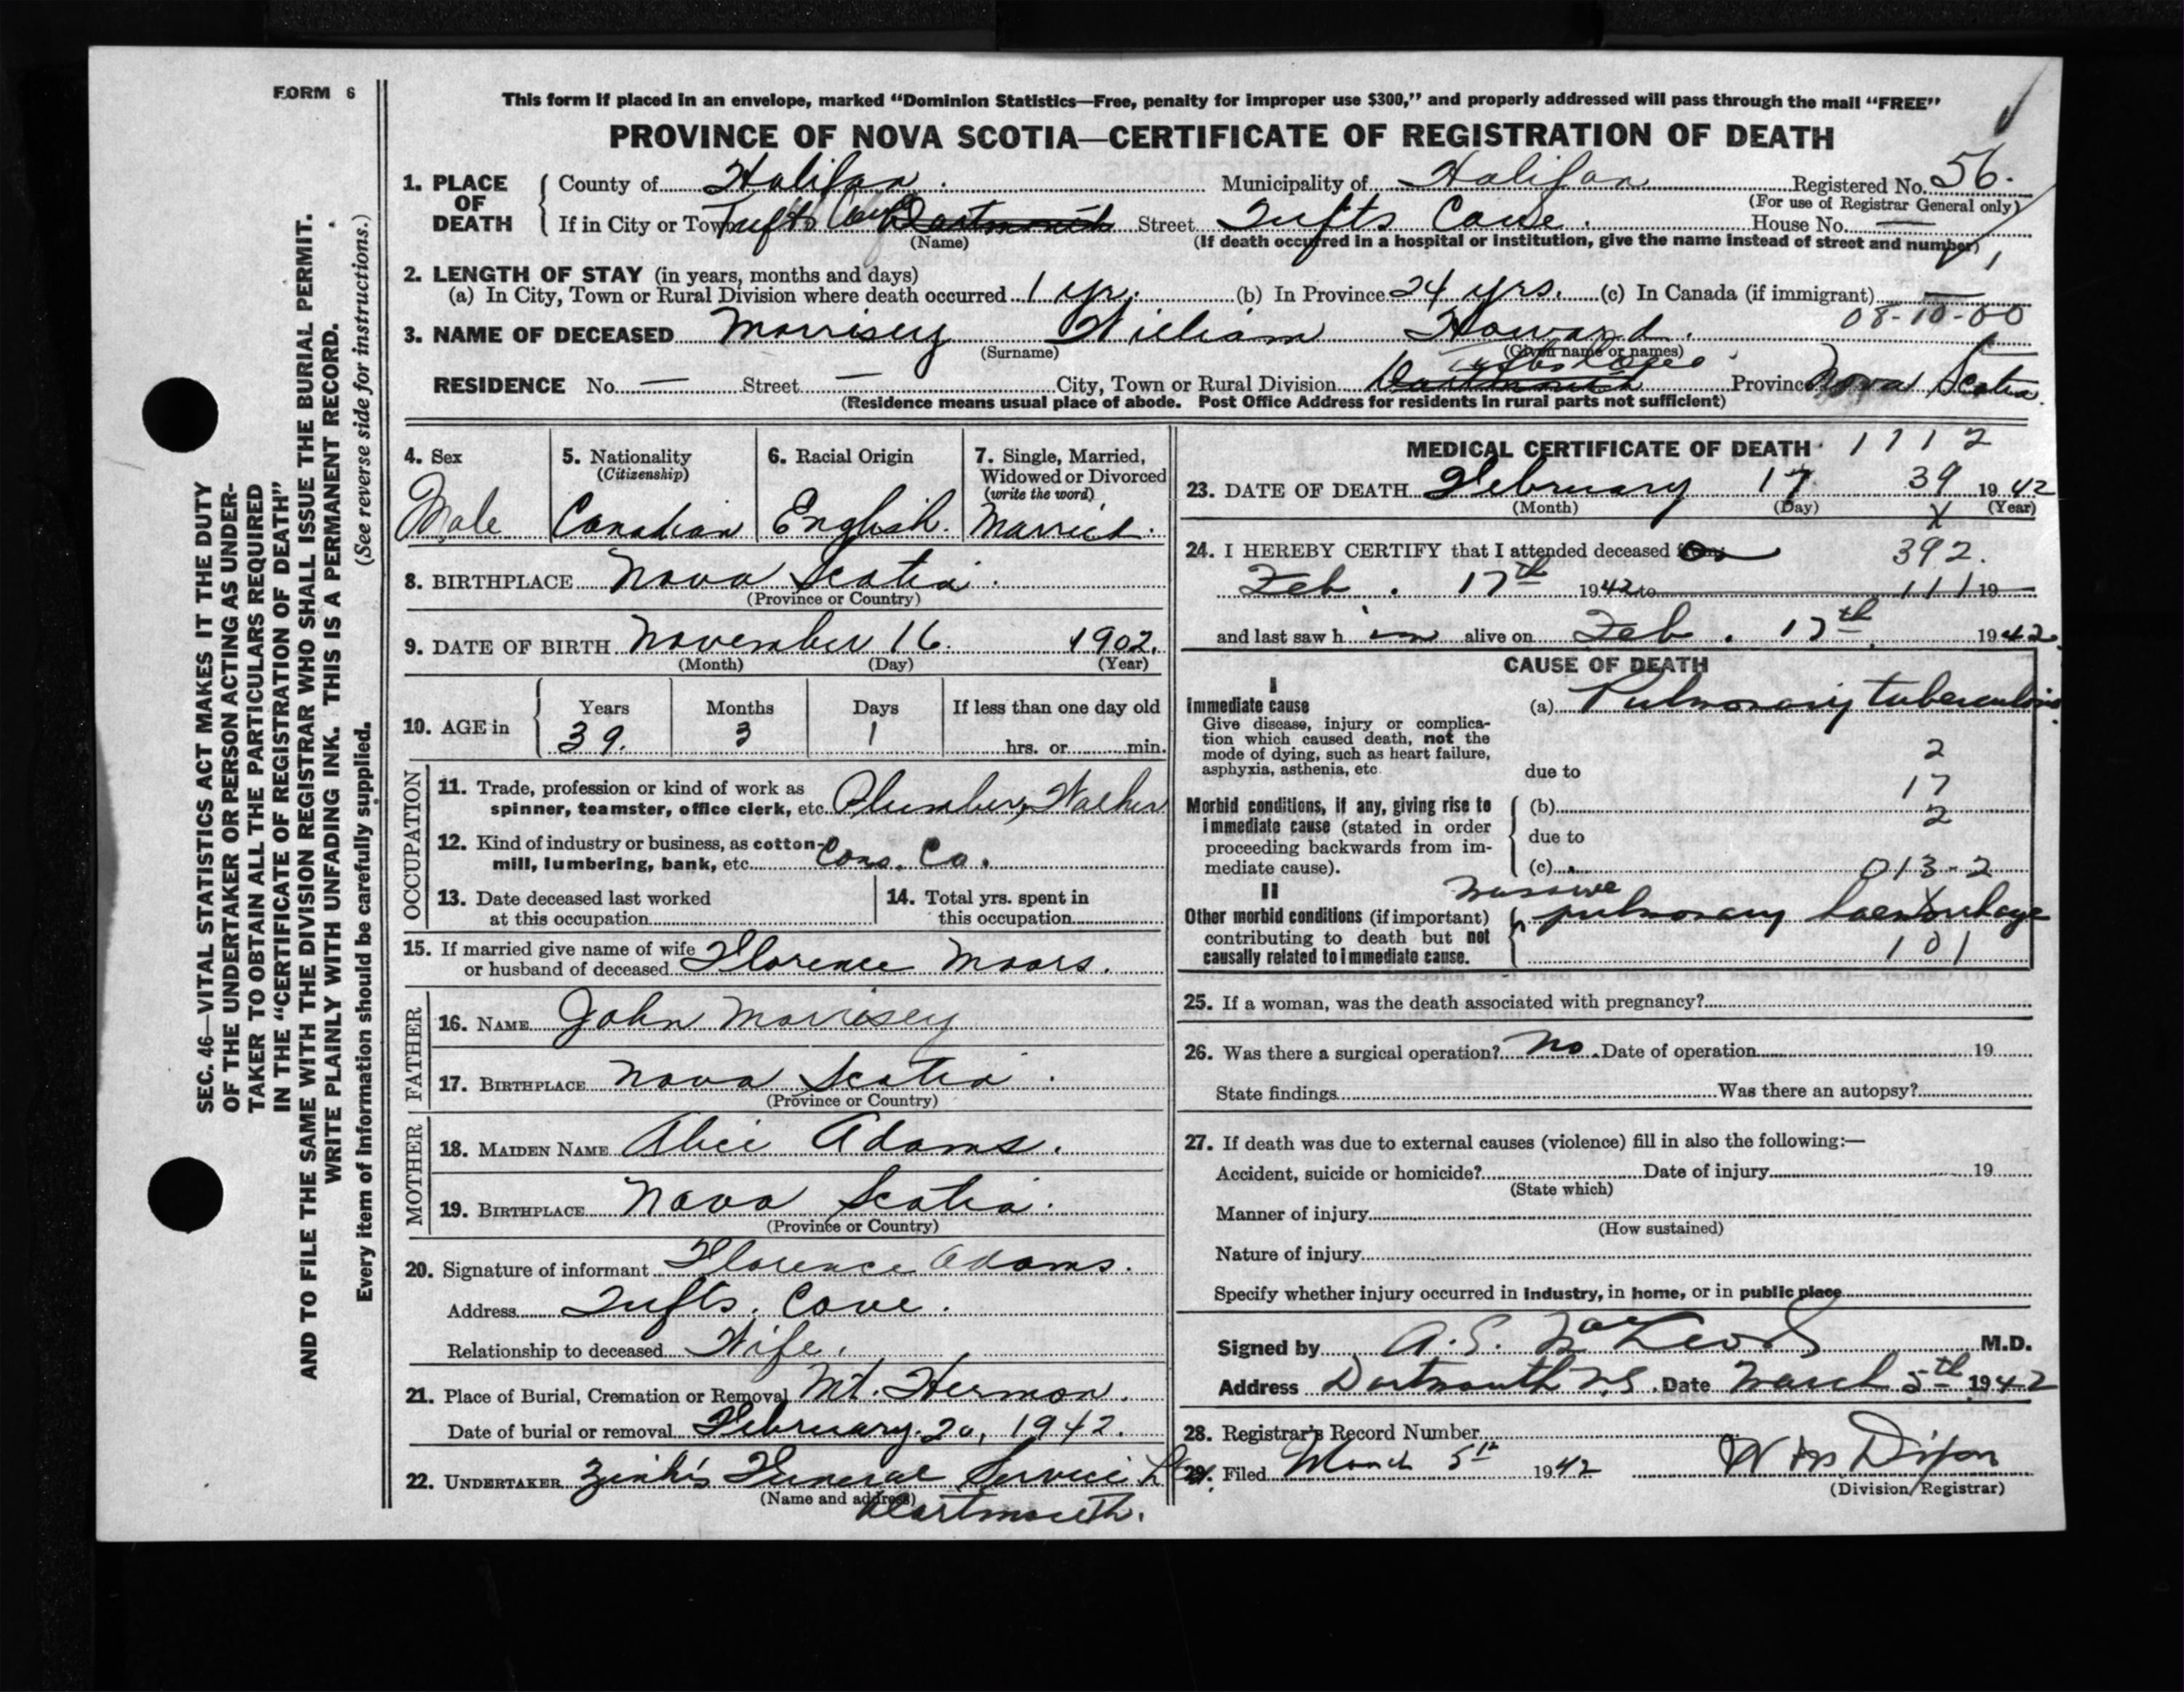 FORM 6
This form if placed in an envelope, marked "Dominion Statistics—Free, penalty for improper use $300," and properly addressed will pass through the mail "FREE"
PROVINCE OF NOVA SCOTIA—CERTIFICATE OF REGISTRATION OF DEATH
1. PLACE OF DEATH
County of Halifax. Municipality of Halifax Registered No. 56.
(For use of Registrar General only)
If in City or Town Tufts Cove Dartmouth Street Tufts Cove. House No. —
(Name) (If death occurred in a hospital or institution, give the name instead of street and number)
2. LENGTH OF STAY (in years, months and days)
(a) In City, Town or Rural Division where death occurred 1 yr. (b) In Province 24 yrs. (c) In Canada (if immigrant) —
08-10-00
3. NAME OF DECEASED Morrisey William Howard.
(Surname) (Given name or names)
Tufts Cove
RESIDENCE No. — Street — City, Town or Rural Division Dartmouth Province Nova Scotia.
(Residence means usual place of abode. Post Office Address for residents in rural parts not sufficient)
4. Sex
Male
5. Nationality
(Citizenship)
Canadian
6. Racial Origin
English.
7. Single, Married, Widowed or Divorced
(write the word)
Married.
8. BIRTHPLACE Nova Scotia.
(Province or Country)
9. DATE OF BIRTH November 16. 1902.
(Month) (Day) (Year)
10. AGE in
Years Months Days If less than one day old
39. 3 1 hrs. or min.
OCCUPATION
11. Trade, profession or kind of work as
spinner, teamster, office clerk, etc. Plumber, Walker
12. Kind of industry or business, as cotton-
mill, lumbering, bank, etc. Cons. Co.
13. Date deceased last worked
at this occupation
14. Total yrs. spent in
this occupation
15. If married give name of wife
or husband of deceased Florence Moors.
FATHER
16. NAME John Morrisey
17. BIRTHPLACE Nova Scotia.
(Province or Country)
MOTHER
18. MAIDEN NAME Alice Adams.
19. BIRTHPLACE Nova Scotia.
(Province or Country)
20. Signature of informant Florence Adams.
Address Tufts. Cove.
Relationship to deceased Wife.
21. Place of Burial, Cremation or Removal Mt. Hermon.
Date of burial or removal February. 20, 1942.
22. UNDERTAKER Zink's Funeral Service Ltd.
(Name and address)
Dartmouth.
MEDICAL CERTIFICATE OF DEATH 1712
23. DATE OF DEATH February 17. 39 1942
(Month) (Day) (Year)
X
24. I HEREBY CERTIFY that I attended deceased from on 392.
Feb. 17th 1942 to 111 19
and last saw him alive on Feb. 17th. 1942.
CAUSE OF DEATH
I
Immediate cause
Give disease, injury or complica-
tion which caused death, not the
mode of dying, such as heart failure,
asphyxia, asthenia, etc.
(a) Pulmonary tuberculosis.
2
due to
17
Morbid conditions, if any, giving rise to
immediate cause (stated in order
proceeding backwards from im-
mediate cause).
(b)
2
due to
(c) 013-2
II
Other morbid conditions (if important)
contributing to death but not
causally related to immediate cause.
massive
pulmonary haemorrhage
101
25. If a woman, was the death associated with pregnancy?
26. Was there a surgical operation? No. Date of operation 19
State findings Was there an autopsy?
27. If death was due to external causes (violence) fill in also the following:—
Accident, suicide or homicide? Date of injury 19
(State which)
Manner of injury
(How sustained)
Nature of injury
Specify whether injury occurred in industry, in home, or in public place
Signed by A. S. MacLeod M.D.
Address Dartmouth N.S. Date March 5th 1942
28. Registrar's Record Number
29. Filed March 5th 1942 W M Dixon
(Division Registrar)
SEC. 46—VITAL STATISTICS ACT MAKES IT THE DUTY
OF THE UNDERTAKER OR PERSON ACTING AS UNDER-
TAKER TO OBTAIN ALL THE PARTICULARS REQUIRED
IN THE "CERTIFICATE OF REGISTRATION OF DEATH"
AND TO FILE THE SAME WITH THE DIVISION REGISTRAR WHO SHALL ISSUE THE BURIAL PERMIT.
WRITE PLAINLY WITH UNFADING INK. THIS IS A PERMANENT RECORD.
Every item of information should be carefully supplied. (See reverse side for instructions.)